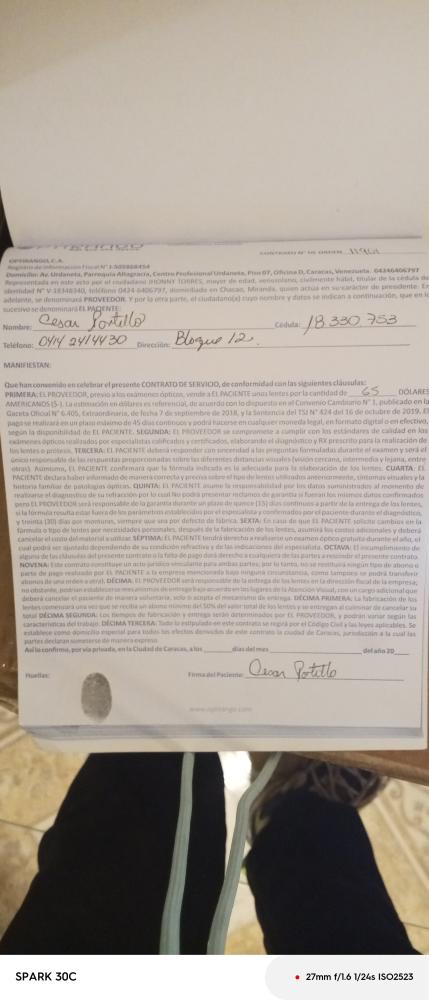 CONTRATO N° DE ORDEN
OPTIRANGO, C.A.
Registro de Información Fiscal N° J-505868454
Domicilio: Av. Urdaneta, Parroquia Altagracia, Centro Profesional Urdaneta, Piso 07, Oficina D, Caracas, Venezuela. 04246406797
Representada en este acto por el ciudadano JHONNY TORRES, mayor de edad, venezolano, civilmente hábil, titular de la cédula de
identidad N° V-18348340, teléfono 0424-6406797, domiciliado en Chacao, Miranda, quien actúa en su carácter de presidente. En
adelante, se denominará PROVEEDOR. Y por la otra parte, el ciudadano(a) cuyo nombre y datos se indican a continuación, que en lo
sucesivo se denominará EL PACIENTE:
Nombre: Cesar Portillo Cédula: 18.330.753
Teléfono: 0414 2414430 Dirección: Bloque 12.
MANIFIESTAN:
Que han convenido en celebrar el presente CONTRATO DE SERVICIO, de conformidad con las siguientes cláusulas:
PRIMERA: EL PROVEEDOR, previo a los exámenes ópticos, vende a EL PACIENTE unos lentes por la cantidad de 65 DÓLARES
AMERICANOS ($-). La estimación en dólares es referencial, de acuerdo con lo dispuesto en el Convenio Cambiario N° 1, publicado en la
Gaceta Oficial N° 6.405, Extraordinario, de fecha 7 de septiembre de 2018, y la Sentencia del TSJ N° 424 del 16 de octubre de 2019. El
pago se realizará en un plazo máximo de 45 días continuos y podrá hacerse en cualquier moneda legal, en formato digital o en efectivo,
según la disposibilidad de EL PACIENTE. SEGUNDA: EL PROVEEDOR se compromete a cumplir con los estándares de calidad en los
exámenes ópticos realizados por especialistas calificados y certificados, elaborando el diagnóstico y RX prescrito para la realización de
los lentes o prótesis. TERCERA: EL PACIENTE deberá responder con sinceridad a las preguntas formuladas durante el examen y será el
único responsable de las respuestas proporcionadas sobre las diferentes distancias visuales (visión cercana, intermedia y lejana, entre
otras). Asimismo, EL PACIENTE confirmará que la fórmula indicada es la adecuada para la elaboración de los lentes. CUARTA: EL
PACIENTE declara haber informado de manera correcta y precisa sobre el tipo de lentes utilizados anteriormente, síntomas visuales y la
historia familiar de patologías ópticas. QUINTA: EL PACIENTE asume la responsabilidad por los datos suministrados al momento de
realizarse el diagnostico de su refracción por lo cual No podrá presentar reclamos de garantía si fueran los mismos datos confirmados
pero EL PROVEEDOR será responsable de la garantía durante un plazo de quince (15) días continuos a partir de la entrega de los lentes,
si la fórmula resulta estar fuera de los parámetros establecidos por el especialista y confirmados por el paciente durante el diagnóstico,
y treinta (30) días por monturas, siempre que sea por defecto de fábrica. SEXTA: En caso de que EL PACIENTE solicite cambios en la
fórmula o tipo de lentes por necesidades personales, después de la fabricación de los lentes, asumirá los costos adicionales y deberá
cancelar el costo del material a utilizar. SÉPTIMA: EL PACIENTE tendrá derecho a realizarse un examen óptico gratuito durante el año, el
cual podrá ser ajustado dependiendo de su condición refractiva y de las indicaciones del especialista. OCTAVA: El incumplimiento de
alguna de las cláusulas del presente contrato o la falta de pago dará derecho a cualquiera de las partes a rescindir el presente contrato.
NOVENA: Este contrato constituye un acto jurídico vinculante para ambas partes; por lo tanto, no se restituirá ningún tipo de abono o
parte de pago realizado por EL PACIENTE a la empresa mencionada bajo ninguna circunstancia, como tampoco se podrá transferir
abonos de una orden a otra). DÉCIMA: EL PROVEEDOR será responsable de la entrega de los lentes en la dirección fiscal de la empresa,
no obstante, podrían establecerse mecanismos de entrega bajo acuerdo en los lugares de la Atención Visual, con un cargo adicional que
deberá cancelar el paciente de manera voluntaria, solo si acepta el mecanismo de entrega. DÉCIMA PRIMERA: La fabricación de los
lentes comenzará una vez que se reciba un abono mínimo del 50% del valor total de los lentes y se entregan al culminar de cancelar su
total DÉCIMA SEGUNDA: Los tiempos de fabricación y entrega serán determinados por EL PROVEEDOR, y podrán variar según las
características del trabajo. DÉCIMA TERCERA: Todo lo estipulado en este contrato se regirá por el Código Civil y las leyes aplicables. Se
establece como domicilio especial para todos los efectos derivados de este contrato la ciudad de Caracas, jurisdicción a la cual las
partes declaran someterse de manera expresa.
Así lo confirma, por vía privada, en la Ciudad de Caracas, a los ______ días del mes ______ del año 20___
Huellas: Firma del Paciente: Cesar Portillo
www.optirango.com
SPARK 30C
27mm f/1.6 1/24s ISO2523